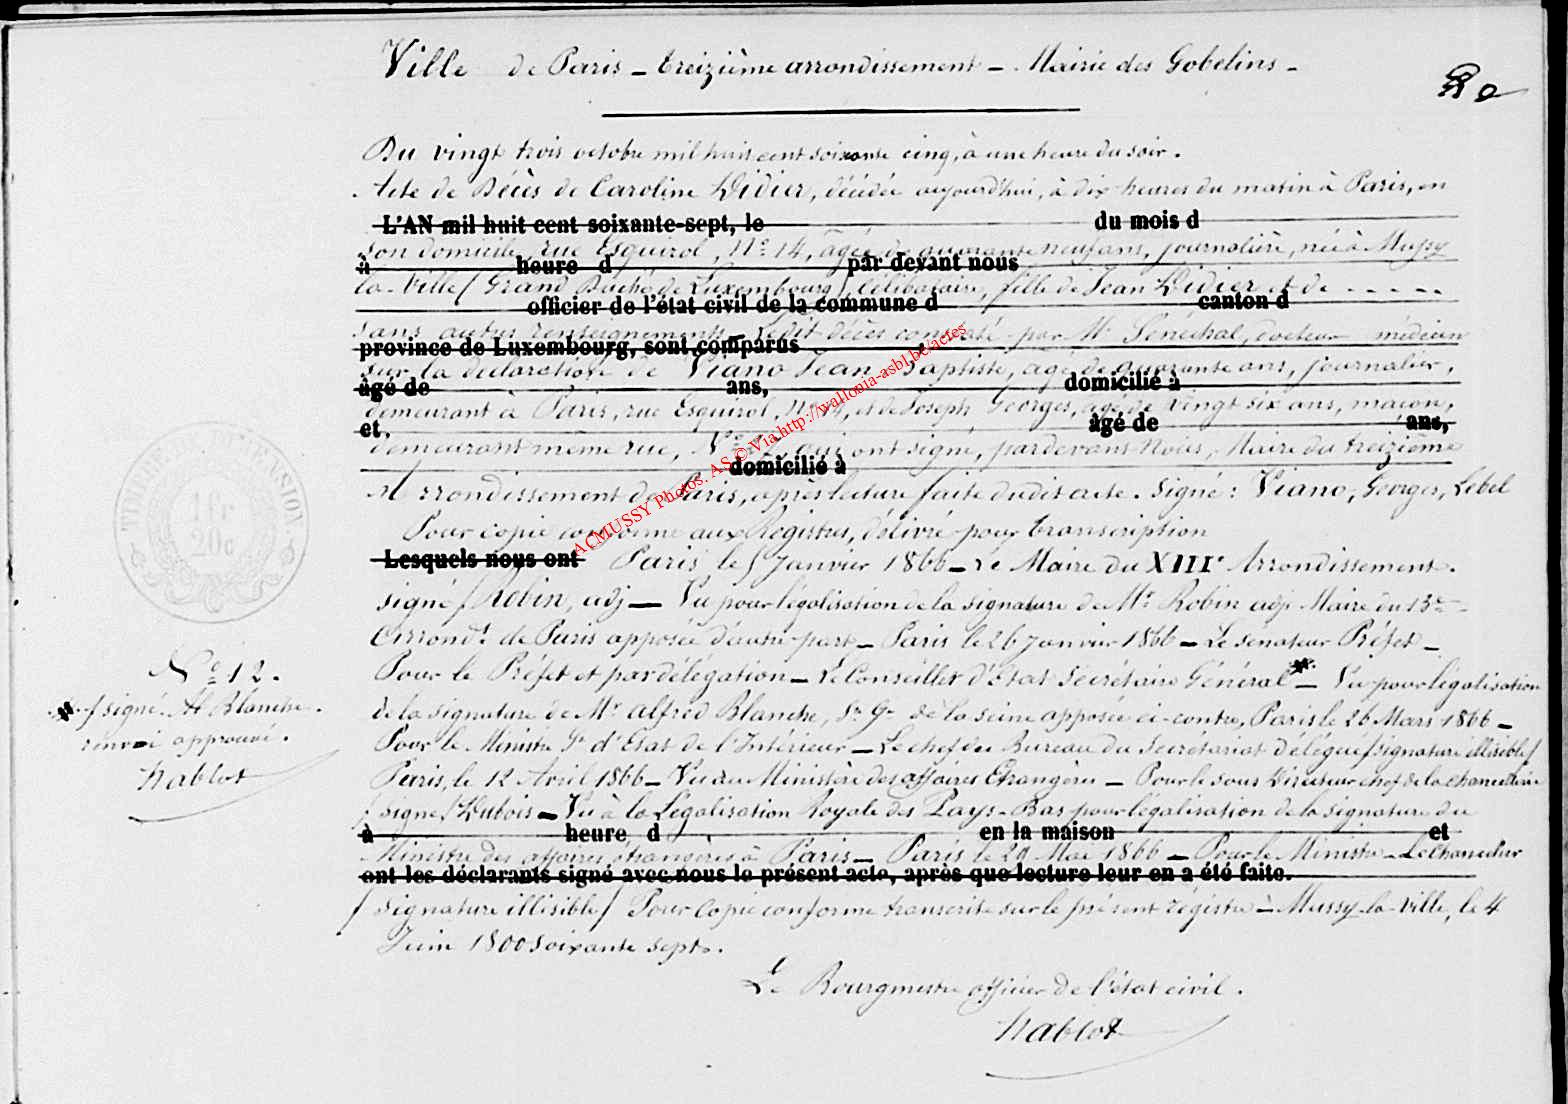 Ville de Paris – treizième arrondissement – Mairie des Gobelins –
Du vingt trois octobre mil huit cent soixante cinq, à une heure du soir.
Acte de Décès de Caroline Didier, décédée aujourd'hui, à dix heures du matin à Paris, en
L'AN mil huit cent soixante-sept, le du mois d
son domicile, rue Esquirol, No 14, âgée de quarante neuf ans, journalière, née à Mussy
à heure d par devant nous
la-Ville (Grand Duché de Luxembourg) Célibataire, fille de Jean Didier et de - - - - -
officier de l'état civil de la commune d canton d
sans autres renseignements – Ledit décès constaté par Mr Sénéchal, docteur médecin
province de Luxembourg, sont comparus
sur la déclaration de Viano Jean Baptiste, âgé de quarante ans, journalier,
âgé de ans, domicilié à
demeurant à Paris, rue Esquirol, No 14, et de Joseph Georges, âgé de vingt six ans, maçon,
et âgé de ans,
demeurant même rue, No qui ont signé, pardevant nous, Maire du treizième
domicilié à
Arrondissement de Paris, après lecture faite dudit acte. Signé : Viano, Georges, Lebel
Pour copie conforme aux Registres, délivré pour transcription
Lesquels nous ont Paris le 5 Janvier 1866 – Le Maire du XIIIe Arrondissement.
signé / Robin, adj — Vu pour légalisation de la signature de Mr Robin adj. Maire du 13me
Arrondt de Paris apposée d'autre part – Paris le 26 Janvier 1866 – Le senateur Préfet –
No 12.
Pour le Préfet et par délégation – Le Conseiller d'Etat Secrétaire Général – Vu pour légalisation
/ signé. At Blanche.
de la signature de Mr Alfred Blanche, Sre Gl de la Seine apposée ci-contre, Paris le 26 Mars 1866 –
renvoi approuvé.
Pour le Ministre Sre d'Etat de l'Intérieur – Le chef du Bureau du Secrétariat Délégué / signature illisible /
Nablot
Paris, le 12 Avril 1866 – Vu au Ministère des affaires Etrangères – Pour le sous Directeur chef de la chancellerie
/ signé / Dubois – Vu à la Légalisation Royale des Pays-Bas pour légalisation de la signature du
à heure d en la maison et
Ministre des affaires étrangères à Paris – Paris le 29 Mai 1866 – Pour le Ministre – Le Chancelier
ont les déclarants signé avec nous le présent acte, après que lecture leur en a été faite.
/ signature illisible / Pour Copie conforme transcrite sur le présent régistre à Mussy-la-ville, le 4
Juin 1800 soixante sept.
Le Bourgmestre officier de l'état civil.
Nablot
TIMBRE DE DIMENSION
1 fr
20c
ACMUSSY Photos. AS © Via http://wallonia-asbl.be/actes